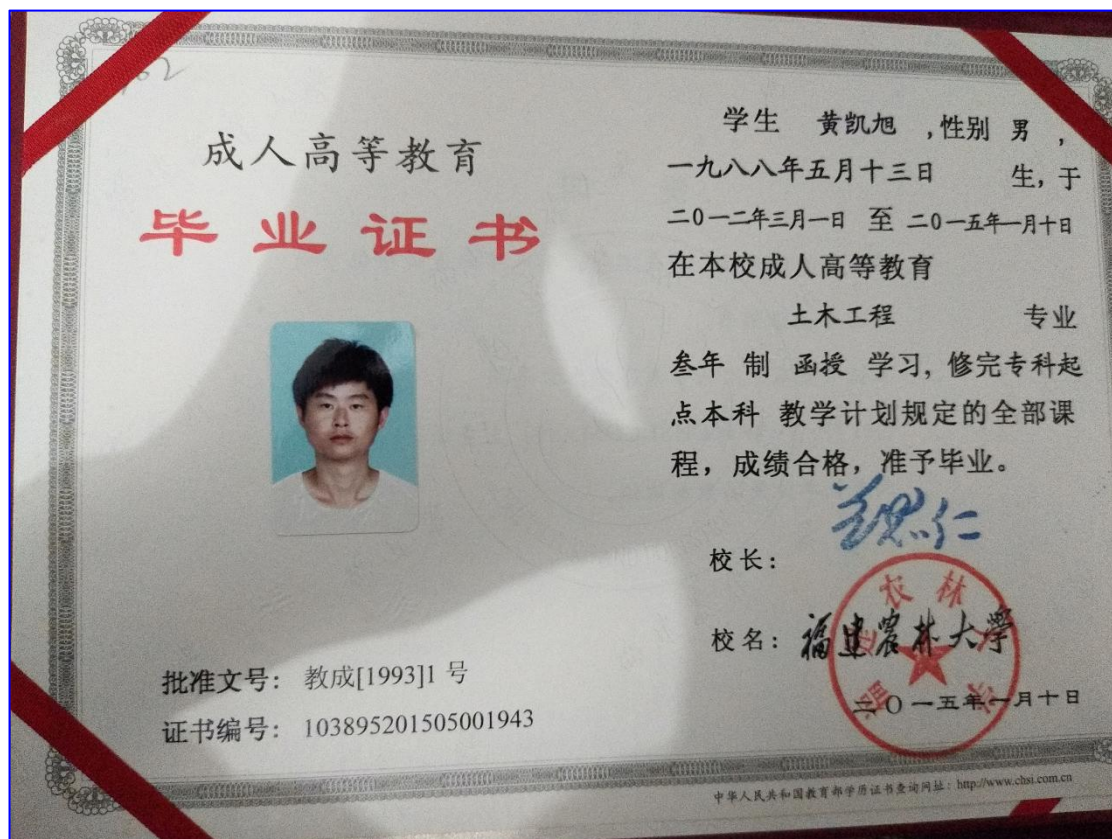 成人高等教育
毕业证书
批准文号: 教成[1993]1 号
证书编号: 103895201505001943
学生 黄凯旭 ,性别 男 ,
一九八八年五月十三日 生, 于
二0一二年三月一日 至 二0一五年一月十日
在本校成人高等教育
土木工程 专业
叁年 制 函授 学习, 修完专科起
点本科 教学计划规定的全部课
程, 成绩合格, 准予毕业。
校长:
校名: 福建农林大學
二0一五年一月十日
中华人民共和国教育部学历证书查询网址: http://www.chsi.com.cn